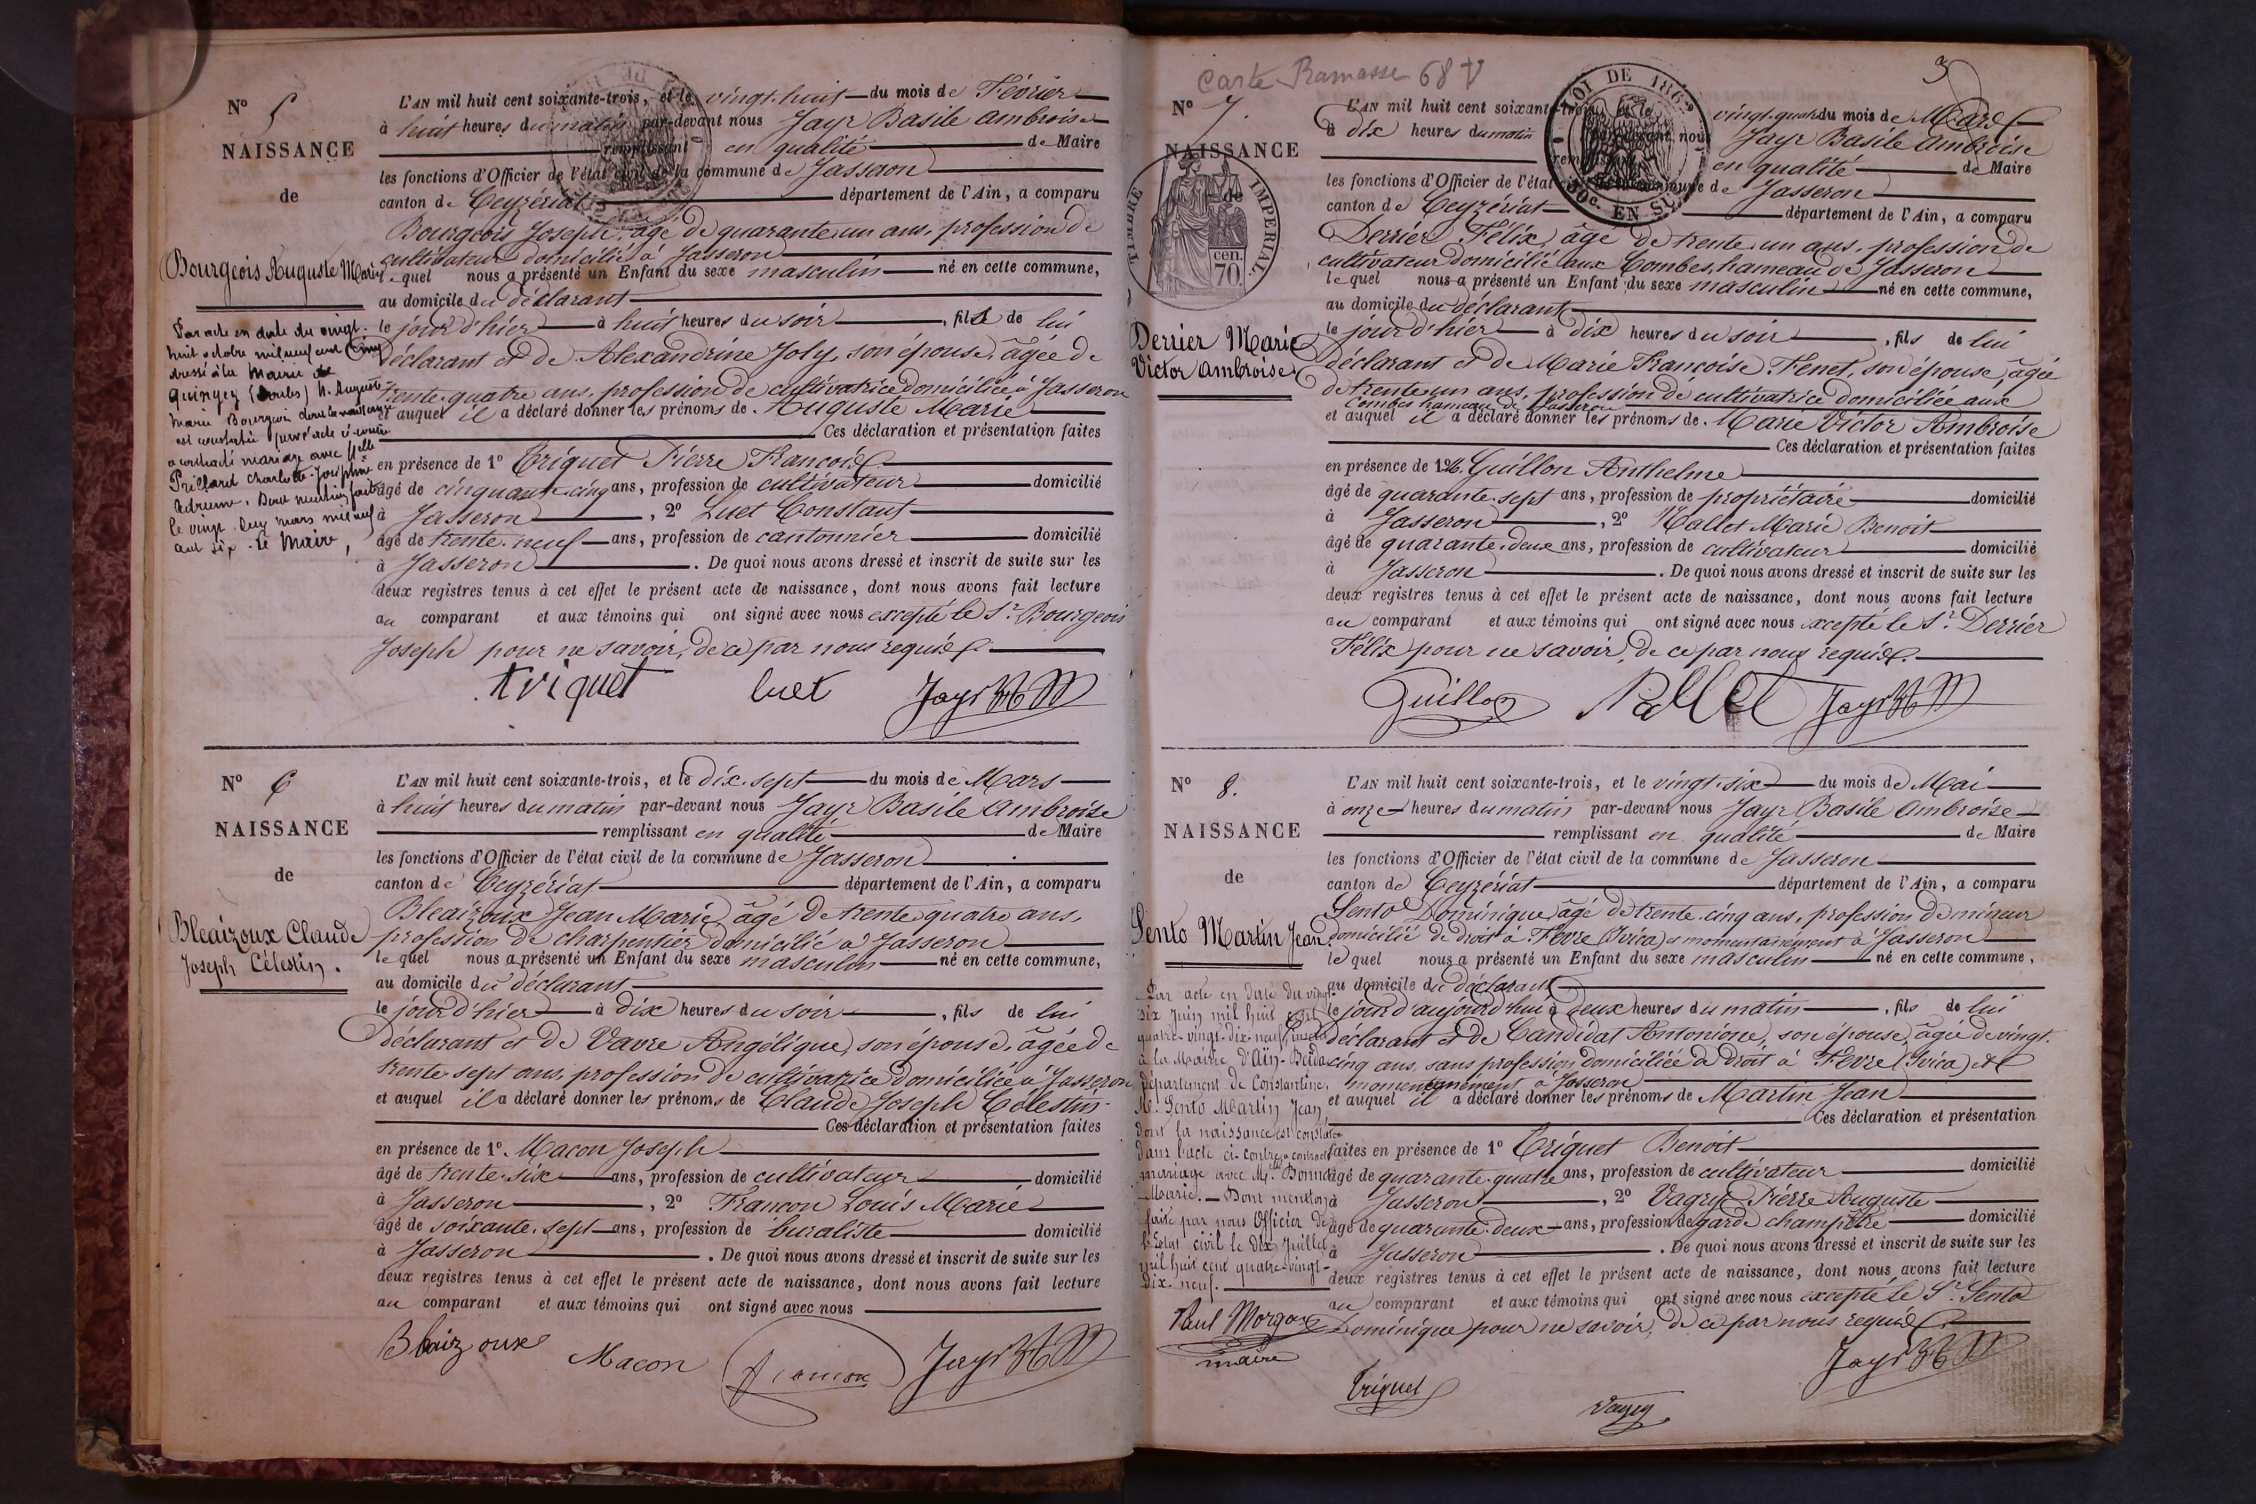 N° 5
NAISSANCE
de
Bourgeois Auguste Marie
Par acte en date du vingt-
huit octobre mil neuf cent cinq
dressé à la Mairie de
Quingey (Doubs) M. Auguste
Marie Bourgeois dont la naissance
est constatée par l'acte ci-contre
a contracté mariage avec Mlle
Prillard Charlotte Joséphine
Dont mention faite
le vingt deux mars mil neuf
cent six. Le Maire,
L'AN mil huit cent soixante-trois, et le vingt-huit du mois de Février
à huit heures du matin par-devant nous Jayr Basile Ambroise
remplissant en qualité de Maire
les fonctions d'Officier de l'état civil de la commune de Jasseron
canton de Ceyzériat département de l'Ain, a comparu
Bourgeois Joseph, âgé de quarante un ans, profession de
cultivateur domicilié à Jasseron
le quel nous a présenté un Enfant du sexe masculin né en cette commune,
au domicile du déclarant
le jour d'hier à huit heures du soir, fils de lui
déclarant et de Alexandrine Joly, son épouse, âgée de
trente-quatre ans, profession de cultivatrice domiciliée à Jasseron
et auquel il a déclaré donner les prénoms de Auguste Marie
Ces déclaration et présentation faites
en présence de 1° Triquet Pierre François
âgé de cinquante-cinq ans, profession de cultivateur domicilié
à Jasseron, 2° Luet Constant
âgé de trente-neuf ans, profession de cantonnier domicilié
à Jasseron. De quoi nous avons dressé et inscrit de suite sur les
deux registres tenus à cet effet le présent acte de naissance, dont nous avons fait lecture
au comparant et aux témoins qui ont signé avec nous excepté le Sr. Bourgeois
Joseph pour ne savoir, de ce par nous requis.
triquet luet Jayr
N° 6
NAISSANCE
de
Bleaizoux Claude
Joseph Célestin.
L'AN mil huit cent soixante-trois, et le dix-sept du mois de Mars
à huit heures du matin par-devant nous Jayr Basile Ambroise
remplissant en qualité de Maire
les fonctions d'Officier de l'état civil de la commune de Jasseron
canton de Ceyzériat département de l'Ain, a comparu
Bleaizoux Jean Marie, âgé de trente quatre ans,
profession de charpentier domicilié à Jasseron
le quel nous a présenté un Enfant du sexe masculin né en cette commune,
au domicile du déclarant
le jour d'hier à dix heures du soir, fils de lui
déclarant et de Vavre Angélique, son épouse, âgée de
trente sept ans, profession de cultivatrice domiciliée à Jasseron
et auquel il a déclaré donner les prénoms de Claude Joseph Célestin
Ces déclaration et présentation faites
en présence de 1° Macon Joseph
âgé de trente-six ans, profession de cultivateur domicilié
à Jasseron, 2° Francon Louis Marie
âgé de soixante-sept ans, profession de buraliste domicilié
à Jasseron. De quoi nous avons dressé et inscrit de suite sur les
deux registres tenus à cet effet le présent acte de naissance, dont nous avons fait lecture
au comparant et aux témoins qui ont signé avec nous
Blaizoux Macon Francon Jayr
Carte Ramasse 68
3
N° 7.
NAISSANCE
de
TIMBRE IMPERIAL
70 cen.
LOI DE 1862
Derrier Marie
Victor Ambroise
L'AN mil huit cent soixante-trois, et le vingt-quatre du mois de Mars
à dix heures du matin par-devant nous Jayr Basile Ambroise
remplissant en qualité de Maire
les fonctions d'Officier de l'état civil de la commune de Jasseron
canton de Ceyzériat département de l'Ain, a comparu
Derrier Félix, âgé de trente un ans, profession de
cultivateur domicilié aux Combes, hameau de Jasseron
le quel nous a présenté un Enfant du sexe masculin né en cette commune,
au domicile du déclarant
le jour d'hier à dix heures du soir, fils de lui
déclarant et de Marie Françoise Fenet, son épouse, âgée
de trente un ans, profession de cultivatrice domiciliée aux
Combes hameau de Jasseron
et auquel il a déclaré donner les prénoms de Marie Victor Ambroise
Ces déclaration et présentation faites
en présence de 1° Guillon Anthelme
âgé de quarante-sept ans, profession de propriétaire domicilié
à Jasseron, 2° Nallet Marie Benoit
âgé de quarante-deux ans, profession de cultivateur domicilié
à Jasseron. De quoi nous avons dressé et inscrit de suite sur les
deux registres tenus à cet effet le présent acte de naissance, dont nous avons fait lecture
au comparant et aux témoins qui ont signé avec nous excepté le Sr. Derrier
Félix pour ne savoir, de ce par nous requis.
Guillon Nallet Jayr
N° 8.
NAISSANCE
de
Sento Martin Jean
Par acte en date du vingt-
six juin mil huit cent
quatre-vingt-dix-neuf, inscrit
à la Mairie d'Aïn-Beïda
département de Constantine,
Mr. Sento Martin Jean,
dont la naissance est constatée
dans l'acte ci-contre a contracté
mariage avec Mlle Bonnet
Marie. — Dont mention
faite par nous Officier de
l'Etat civil le dix Juillet
mil huit cent quatre-vingt-
dix-neuf.
Paul Morgon
maire
L'AN mil huit cent soixante-trois, et le vingt-six du mois de Mai
à onze heures du matin par-devant nous Jayr Basile Ambroise
remplissant en qualité de Maire
les fonctions d'Officier de l'état civil de la commune de Jasseron
canton de Ceyzériat département de l'Ain, a comparu
Sento Dominique, âgé de trente-cinq ans, profession de mineur
domicilié de droit à Fevre (Ivica) et momentanément à Jasseron
le quel nous a présenté un Enfant du sexe masculin né en cette commune,
au domicile du déclarant
le jour d'aujourd'hui à deux heures du matin, fils de lui
déclarant et de Candidat Antonione, son épouse, âgée de vingt-
cinq ans, sans profession domiciliée de droit à Fevre (Ivica) et
momentanément à Jasseron
et auquel il a déclaré donner les prénoms de Martin Jean
Ces déclaration et présentation
faites en présence de 1° Triquet Benoit
âgé de quarante-quatre ans, profession de cultivateur domicilié
à Jasseron, 2° Vagey Pierre Auguste
âgé de quarante-deux ans, profession de garde champêtre domicilié
à Jasseron. De quoi nous avons dressé et inscrit de suite sur les
deux registres tenus à cet effet le présent acte de naissance, dont nous avons fait lecture
au comparant et aux témoins qui ont signé avec nous excepté le Sr. Sento
Dominique pour ne savoir, de ce par nous requis.
Jayr
Triquet Vagey